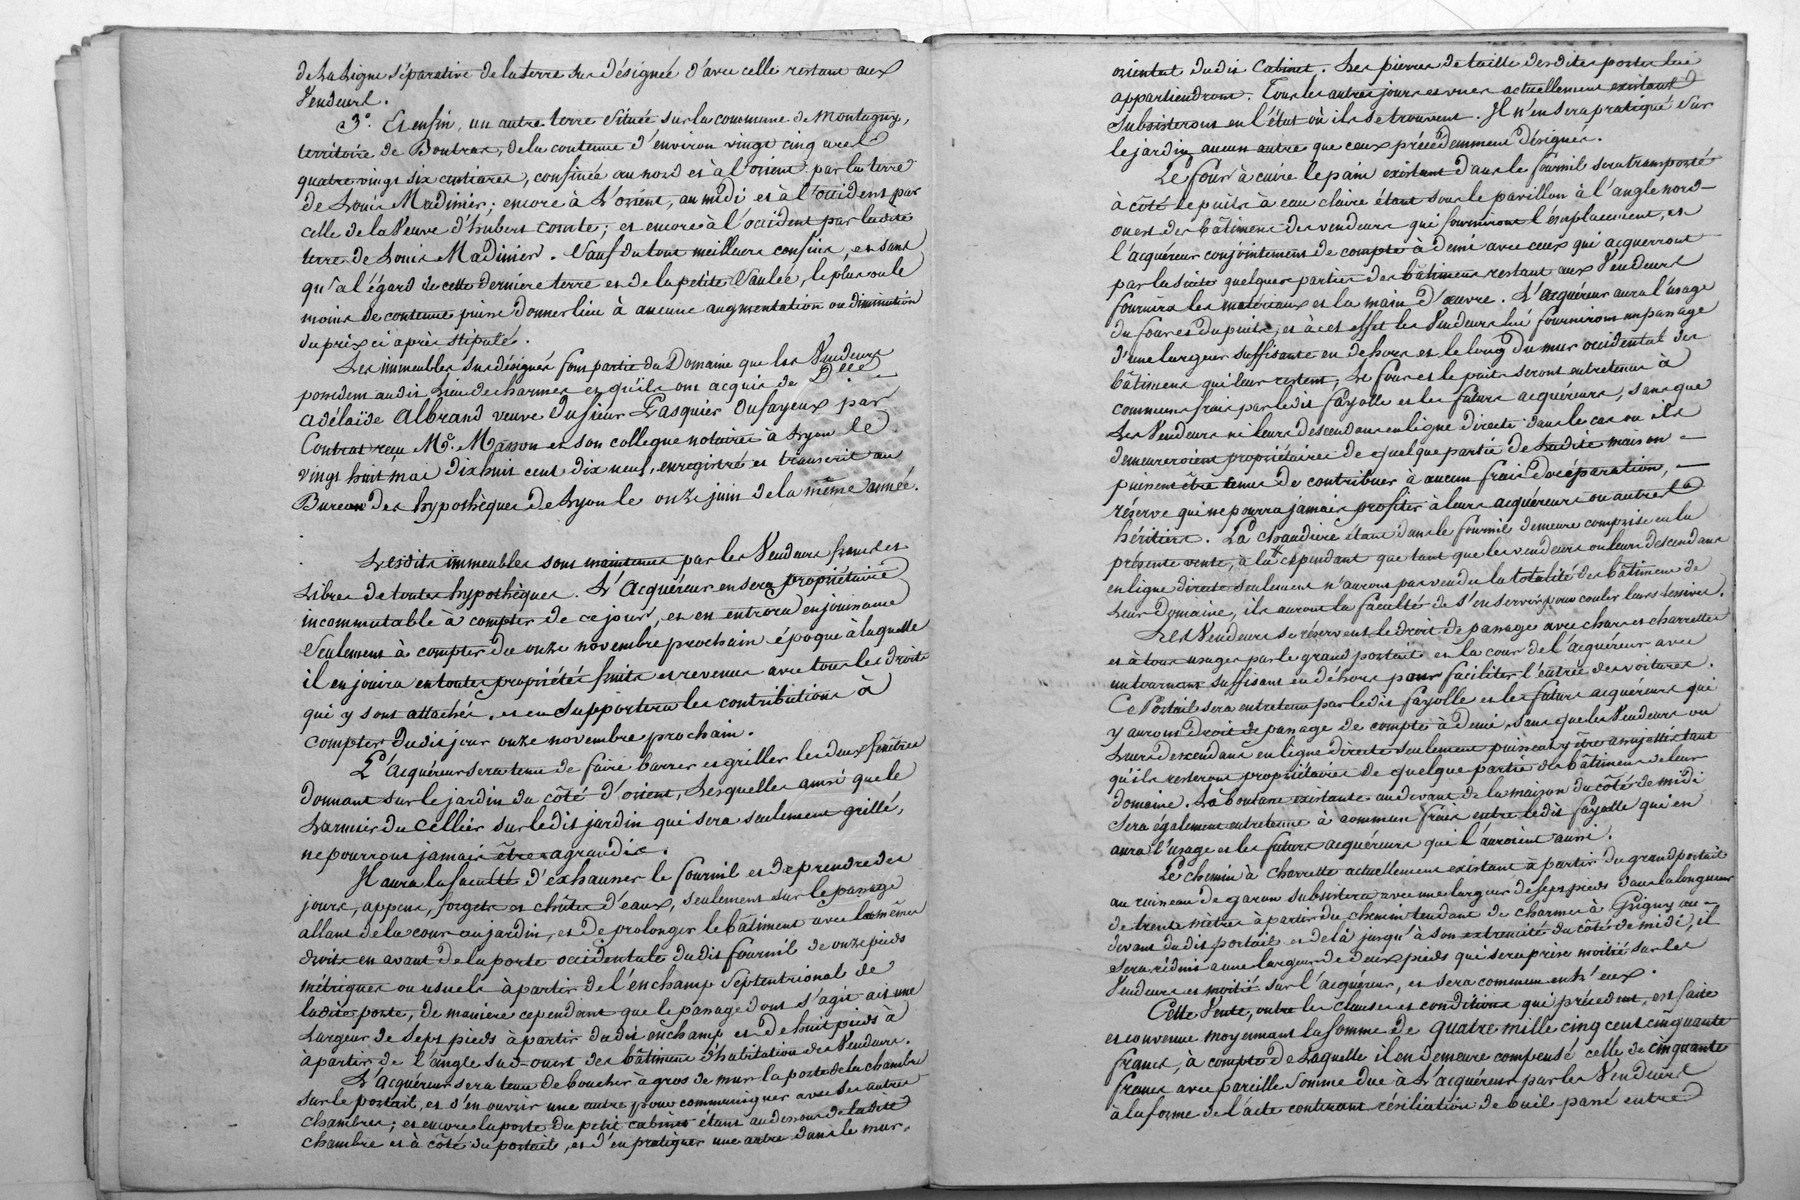 de la ligne séparative de la terre sus désignée d'avec celle restant aux
Vendeurs.
3°. Et enfin, un autre terre située sur la commune de Montagny,
territoire de Boutras, de la contenue d'environ vingt cinq ares
quatre vingt six centiares, confinée au nord et à l'orient par la terre
de Louis Madinier; encore à l'orient, au midi et à l'occident par
celle de la Veuve d'hubert comte; et encore à l'occident par la dite
terre de Louis Madinier. Sauf du tout meilleurs confins, et sans
qu'à l'égard de cette dernière terre et de la petite Vaulée, le plus ou le
moins de contenue puisse donner lieu à aucune augmentation ou diminution
du prix ci après stipulé.
Les immeubles sus désignés font partie du Domaine que les Vendeurs
possèdent au dit Lieu de charmes et qu'ils ont acquis de Dlle
adélaïde albrand veuve du sieur Pasquier Dufayeux par
Contrat reçu Me. Masson et son collegue notaires à Lyon le
vingt huit mai dix huit cent dix neuf, enregistré et transcrit au
Bureau des hypothèques de Lyon le onze juin de la même année.
Lesdits immeubles sont maintenus par les Vendeurs francs et
Libres de toutes hypothèques. L'Acquéreur en sera propriétaire
incommutable à compter de ce jour, et en entrera en jouissance
Seulement à compter du onze novembre prochain époque à laquelle
il en jouira en toutes propriétés fruits et revenus avec tous les droits
qui y sont attachés, et en supportera les contributions à
compter dudit jour onze novembre prochain.
L'acquéreur sera tenu de faire barrer et griller les deux fenêtres
donnant sur le jardin du côté d'orient, Lesquelles ainsi que le
Larmier du cellier sur ledit jardin qui sera seulement grillé,
ne pourront jamais être agrandis.
Il aura la faculté d'exhausser le fournil et d'y prendre des
jours, appens, forgets et chûtes d'eaux, seulement sur le passage
allant de la cour au jardin, et de prolonger le bâtiment avec les mêmes
droits en avant de la porte occidentale dudit fournil de onze pieds
métriques ou usuels à partir de l'enchamp septentrional de
ladite porte, de manière cependant que le passage dont s'agit ait une
Largeur de sept pieds à partir dudit enchamp et de huit pieds à
à partir de l'angle sud-ouest des bâtimens d'habitation des Vendeurs.
L'acquéreur sera tenu de boucher à gros de mur la porte de la chambre
sur le portail, et s'en ouvrir une autre pour communiquer avec les autres
chambres; et encore la porte du petit cabinet étant au dessous de la dite
chambre et à côté du portail, et d'en pratiquer une autre dans le mur
orientat dudit Cabinet. Les pierres de taille desdites portes lui
appartiendront. Tous les autres jours et vues actuellement existant
subsisteront en l'état où ils se trouvent. Il n'en sera pratiqué sur
le jardin aucun autre que ceux précédemment désignés.
Le four à cuire le pain existant dans le fournil sera transporté
à côté le puits à eau claire étant sous le pavillon à l'angle nord-
ouest des bâtimens des vendeurs qui fourniront l'emplacement, et
l'acquéreur conjointement de compte à demi avec ceux qui acquerront
par la suite quelques parties des bâtimens restant aux Vendeurs
fournira les matériaux et la main d'œuvre. L'acquéreur aura l'usage
du four et du puits, et à cet effet les Vendeurs lui fourniront un passage
d'une largeur suffisante en dehors et le long du mur occidental des
bâtimens qui leur restent, Le four et le puits seront entretenus à
communs frais par ledit fayolle et les futurs acquéreurs, sans que
Les Vendeurs ni leurs descendans en ligne directe dans le cas où ils
demeureroient propriétaires de quelque partie de ladite maison -
puissent être tenus de contribuer à aucun frais de réparation, -
réserve qui ne pourra jamais profiter à leurs acquéreurs ou autres
héritiers. La chaudière étant dans le fournil demeure comprise en la
présente vente, à la cependant que tant que les vendeurs ou leurs descendans
en ligne directe seulement n'auront pas vendu la totalité des bâtimens de
Leur Domaine, ils auront la faculté de s'en servir pour couler leurs lessives.
Les Vendeurs se réservent le droit de passage avec chars et charrettes
et à tous usages par le grand portail et la cour de l'acquéreur avec
un tournant suffisant en déhors pour faciliter l'entrée des voitures.
Ce Portail sera entretenu par ledit fayolle et les futurs acquéreurs qui
y auront droit de passage de compte à demi, sans que les Vendeurs ou
Leurs descendans en ligne directe seulement puissent y être assujettis tant
qu'ils resteront propriétaires de quelque partie des bâtimens de leur
domaine. La boutasse existante au devant de la maison du côté de midi
sera également entretenue à commun frais entre ledit fayolle qui en
aura l'usage et les futurs acquéreurs qui l'auroient aussi.
Le chemin à charrette actuellement existant à partir du grand portail
au ruisseau de garon subsistera avec une largeur de sept pieds dans la longueur
de trente mètres à partir du chemin tendant de charmes à Grigny au-
devant dudit portail et delà jusqu'à son extremité du côté de midi, il
sera réduit à une largeur de deux pieds qui sera prise moitié sur les
Vendeurs et moitié sur l'acquéreur, et sera commun entr'eux.
Cette Vente, outre les clauses et conditions qui précèdent, est faite
et convenue moyennant la somme de quatre mille cinq cent cinquante
francs, à compte de laquelle il en demeure compensé celle de cinquante
francs avec pareille somme due à L'acquéreur par les Vendeurs
à la forme de l'acte contenant résiliation de bail passé entre